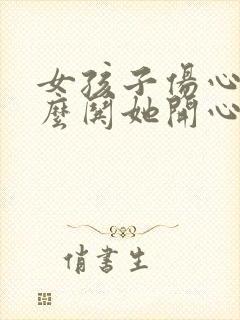 女孩子傷心
麼鬨她開心
俏書生